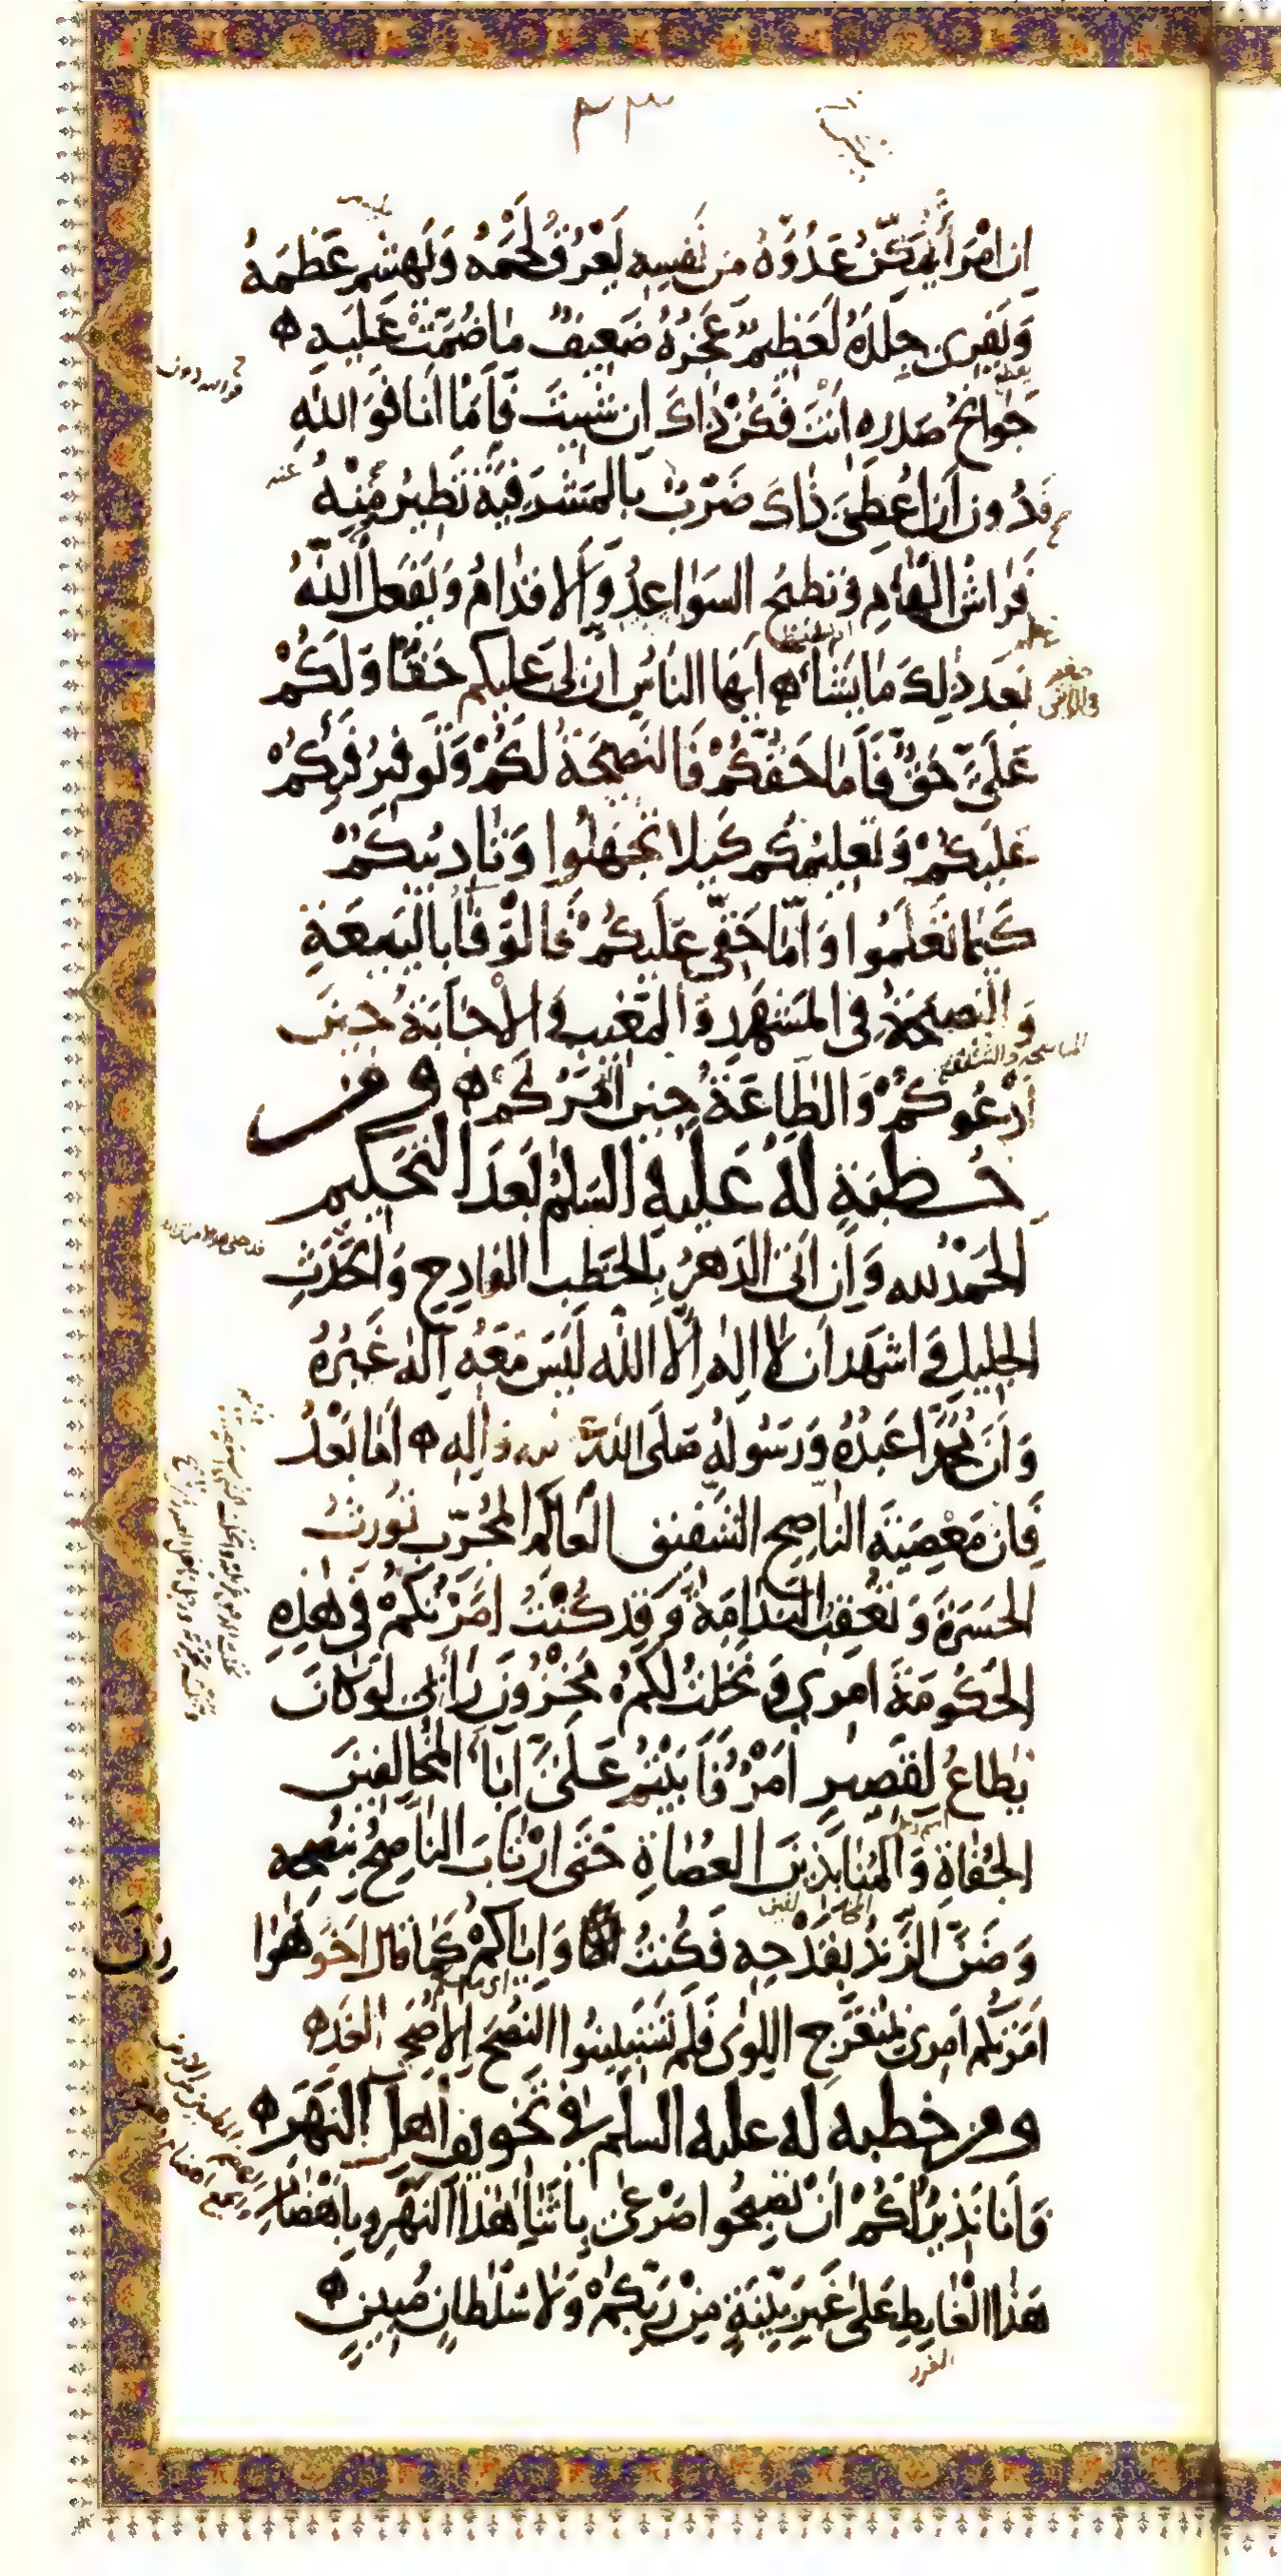 ٣٣
اِن امْرَأً يُمَكِّنُ عَدُوَّهُ مِن نَفسِهِ يَعْرُقُ لَحْمَهُ وَيَهشِمُ عَظمَهُ
وَيَفرِى جِلدَهُ لَعَظِيمٌ عَجْزُهُ ضَعِيفٌ مَا ضُمَّتْ عَلَيهِ
جَوَانِحُ صَدرِهِ اَنتَ فَكُنْ ذَاكَ اِن شِئتَ فَاَمَّا اَنَا فَوَ اللهِ
فَدُونَ اَن اُعطِىَ ذَاكَ ضَرْبٌ بِالمَشرَفِيَّةِ تَطِيرُ مِنْهُ
فَرَاشُ الْهَامِ وَتَطِيحُ السَوَاعِدُ وَالاَقدَامُ وَيَفعَلُ اللهُ
بَعدَ ذلِكَ مَا يَشَاءُ اَيُّهَا النَاسُ اِنَّ لِى عَلَيكُم حَقًّا وَلَكُمْ
عَلَىَّ حَقٌّ فَاَمَّا حَقُّكُمْ فَالنَصِيحَةُ لَكُمْ وَتَوفِيرُ فَيئِكُمْ
عَلَيكُمْ وَتَعلِيمُكُم كَيلَا تَجهَلُوا وَتَادِيبُكُمْ
كَيمَا تَعلَمُوا وَاَمَّا حَقِّى عَلَيكُمْ فَالوَفَاءُ بِالبَيعَةِ
وَالنَصِيحَةُ فِى المَشهَدِ وَالمَغِيبِ وَالاِجَابَةُ حِينَ
اَدْعُوكُمْ وَالطَاعَةُ حِينَ اٰمُرُكُمْ ومن
خطبَةٍ لَهُ عَلَيهِ السَلمُ بَعدَ التَحكِيمِ
الحَمْدُ لله وَاِن اَتَى الدَهرُ بِالخَطبِ الفَادِحِ وَالحَدَثِ
الجَلِيلِ وَاشهَدُ اَن لَا اِلهَ اِلَّا الله لَيسَ مَعَهُ اِلهٌ غَيرُهُ
وَاَنَّ مُحَمَّدًا عَبدُهُ وَرَسُولُهُ صَلَى الله عليه وَاٰلِهِ اَمَّا بَعْدُ
فَاِن مَعْصِيَةَ النَاصِحِ الشَفِيقِ العَالِمِ المُجَرِّبِ تُورِثُ
الحَسرَةَ وَتُعقِبُ النَدَامَةَ وَقَد كُنْتُ اَمَرْتُكُمْ فِى هذِهِ
الحَكُومَةِ اَمرِي وَنَخَلتُ لَكُم مَخْزُونَ رَأْيِى لَو كَانَ
يُطَاعُ لِقَصِيرٍ اَمْرٌ فَاَبَيْتُمْ عَلَىَّ اِبَاءَ المُخَالِفِينَ
الجُفَاةِ وَالمُنَابِذِينَ العُصَاةِ حَتَّى ارْتَابَ النَاصِحُ بِنُصحِهِ
وَضَنَّ الزَنْدُ بِقَدْحِهِ فَكُنتُ وَاِيَّاكُمْ كَمَا قَالَ اَخُو هَوَا
زن
اَمَرْتُكُم اَمرِي بِمُنعَرَجِ اللِوَى فَلَم تَستَبِينُوا النُصحَ اِلَّا ضُحَى الغَدِ
ومن خطبه له عليه السلم فى تخويف اهل النهر
وَاَنَا نَذِيرٌ لَكُمْ اَنْ تُصبِحُوا صَرْعَى بِاَثنَاءِ هذَا النَهرِ وَبِاَهضَامِ
هَذَا الْغَايِطِ عَلَى غَيرِ بَيِّنَةٍ مِنْ رَبِّكُمْ وَلَا سُلطَانٍ مُبِينٍ